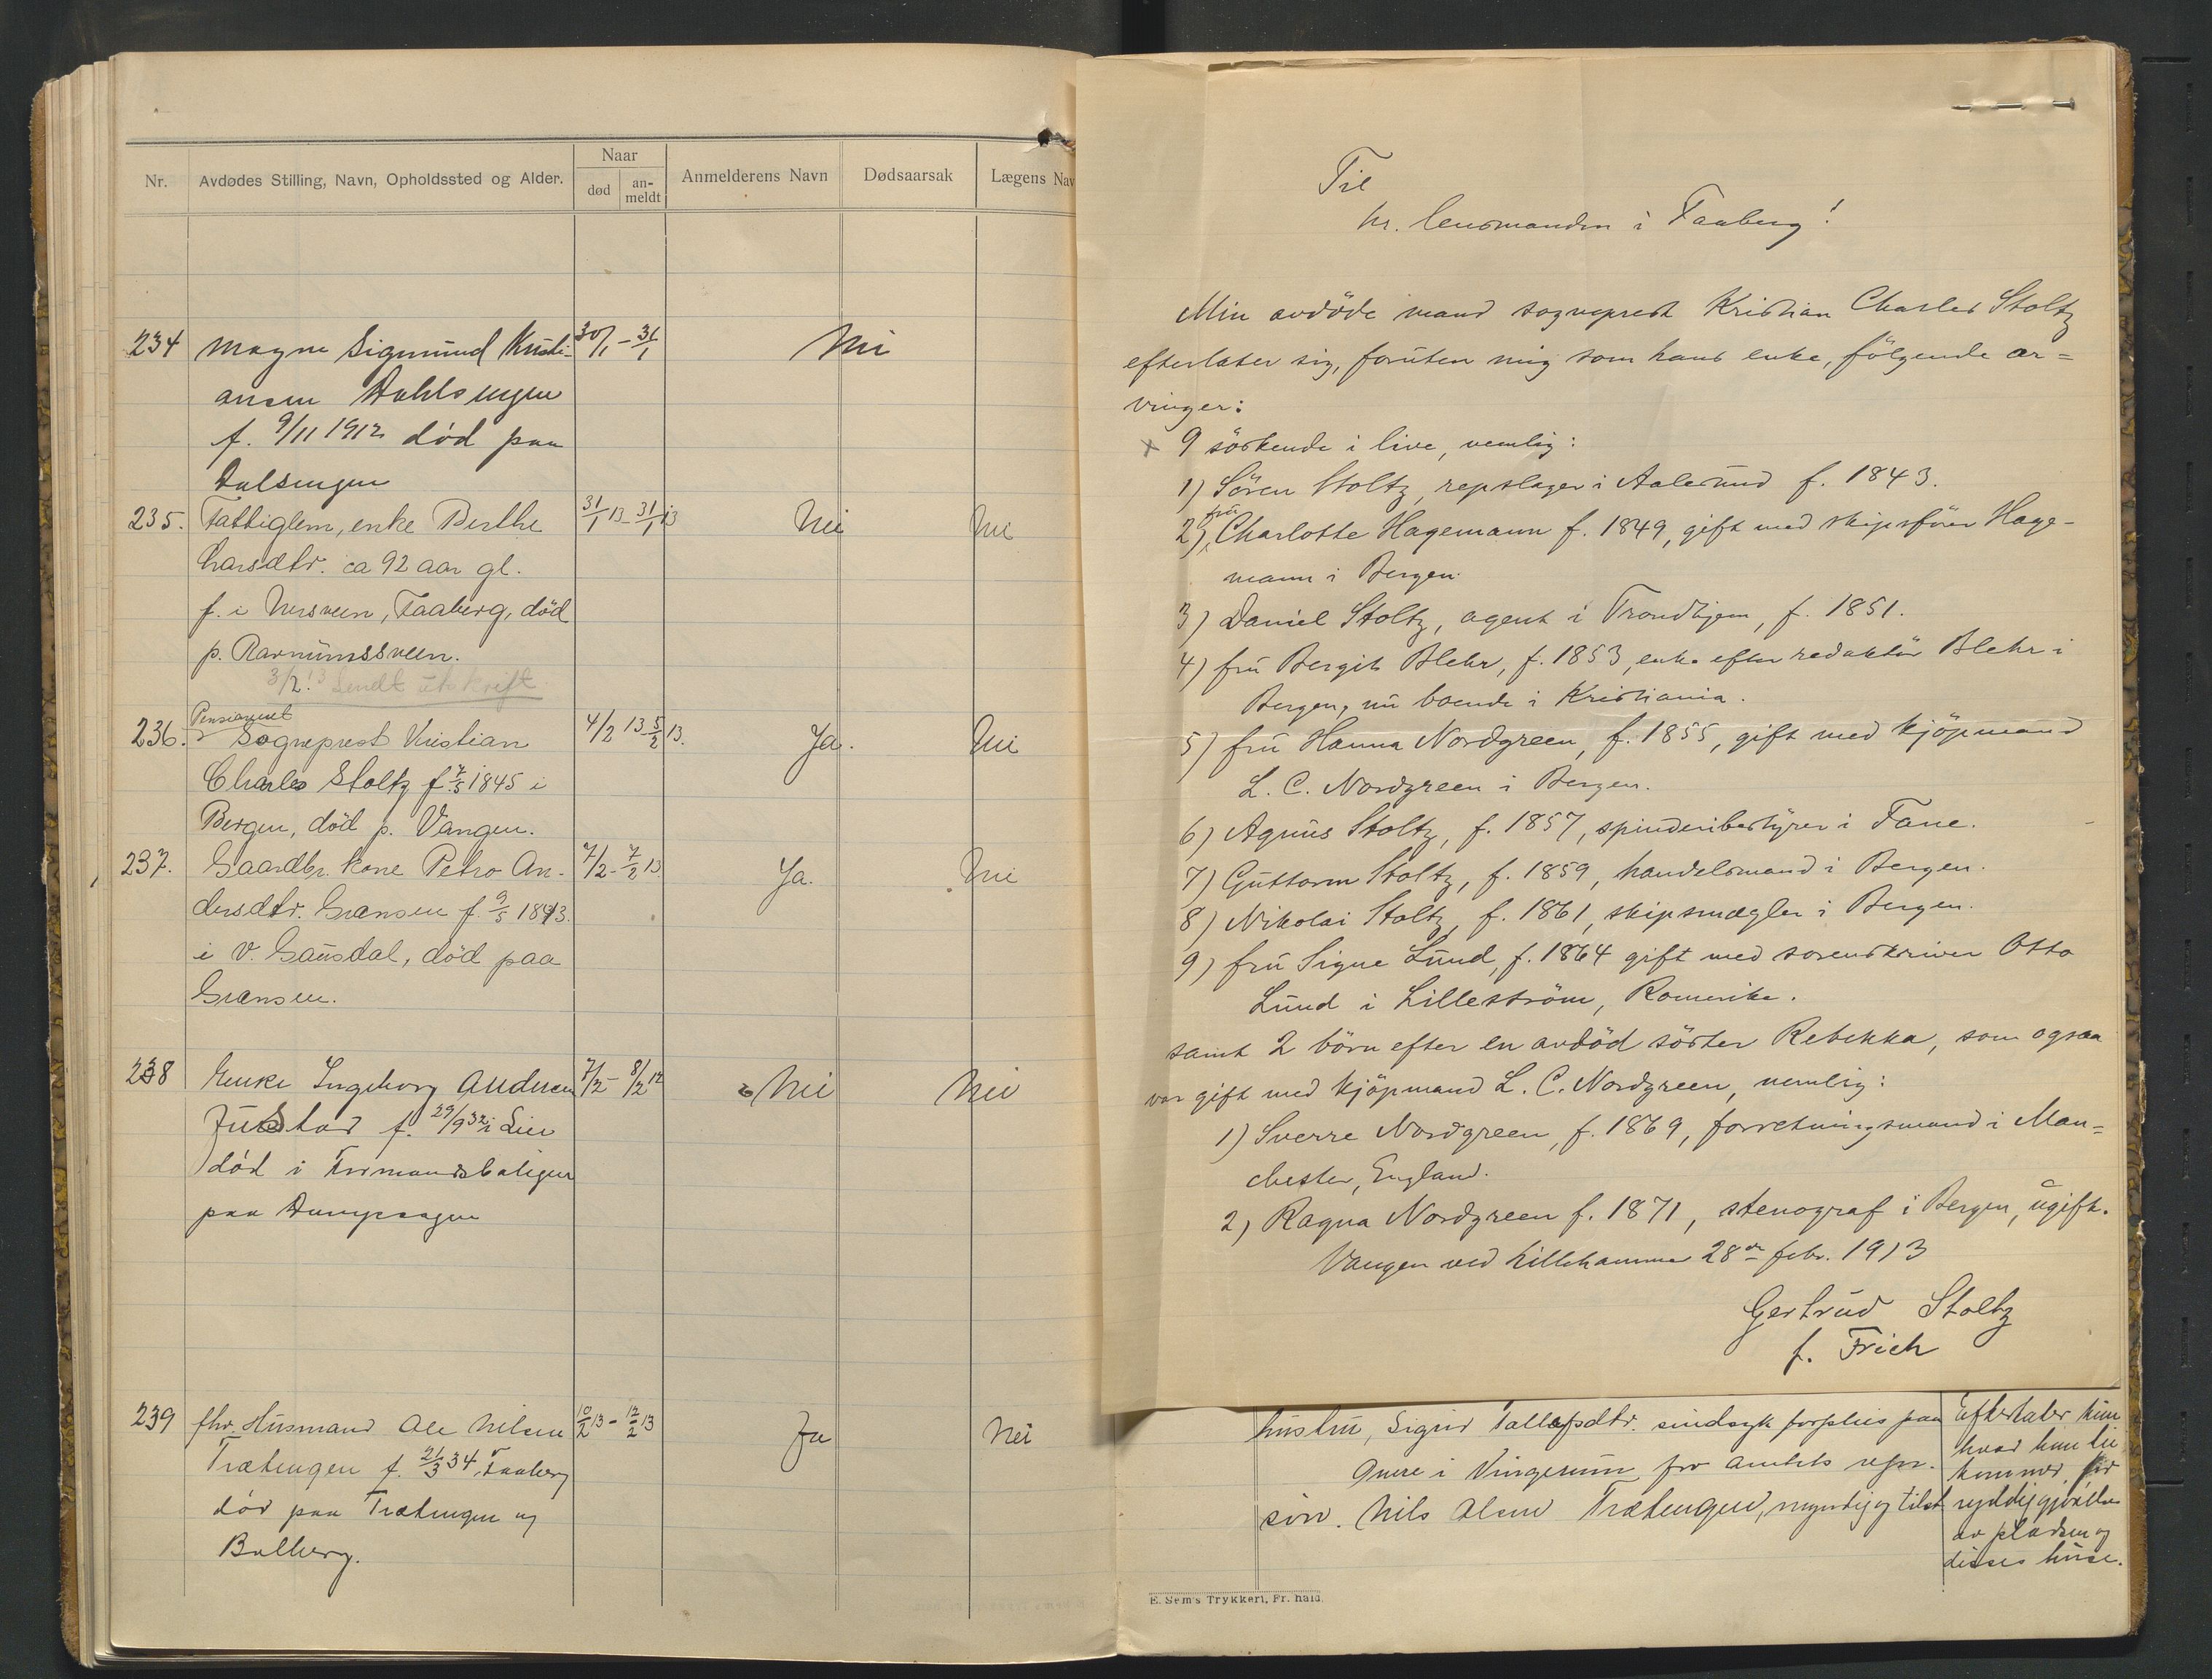 Nr.
Avdødes Stilling, Navn, Opholdssted og Alder.
Naar
død
an-
meldt
Anmelderens Navn
Dødsaarsak
Lægens Nav
234 Magne Sigmund Kristi- 30/1 - 31/1 Nei
ansen Dahlsengen
f. 9/11 1912 død paa
Dalsengen
235. Fattiglem, enke Berthe 31/1 13 - 31/1 13 Nei Nei
Larsdtr. ca 92 aar gl.
f. i Nersveen, Faaberg, död
p. Ravnumssveen.
3/2 13 Sendt utskrift
Pensioneret
236. Sogneprest Kristian 4/2 13 - 5/2 13. Ja. Nei
Charles Stoltz f. 7/5 1845 i
Bergen, död p. Vangen.
237. Gaardbr. kone Petro An- 7/2 - 7/2 13 Ja. Nei
dersdtr. Grænsen f. 9/5 1843.
i V. Gausdal, död paa
Grænsen.
238 Enke Ingeborg Andersen 7/2 - 8/2 Nei Nei
Justad f. 29/9 32 i Lier
død i Formandsboligen
paa
239 fhv. Husmand Ole Nilsen 10/2 13 - 12/2 13 Ja Nei
Trætengen f. 21/3 34, Faaberg
död paa Trætengen og
Balberg.
Til
hr. lensmanden i Faaberg!
Min avdöde mand sogneprest Kristian Charles Stoltz
efterlater sig, foruten mig som hans enke, fölgende ar=
vinger:
x 9 söskende i live, nemlig:
1) Sören Stoltz, repslager i Aalesund f. 1843.
2) fru Charlotte Hagemann f. 1849, gift med skipsförer Hage-
mann i Bergen.
3) Daniel Stoltz, agent i Trondhjem, f. 1851.
4) fru Bergit Blehr, f. 1853, enke efter redaktör Blehr i
Bergen, nu boende i Kristiania.
5) fru Hanna Nordgreen, f. 1855, gift med kjöpmand
L. C. Nordgreen i Bergen.
6) Agnus Stoltz, f. 1857, spinderibestyrer i Fane.
7) Guttorm Stoltz, f. 1859, handelsmand i Bergen.
8) Nikolai Stoltz, f. 1861, skipsmægler i Bergen.
9) fru Signe Lund, f. 1864 gift med sorenskriver Otto
Lund i Lilleström, Romerike.
samt 2 börn efter en avdöd söster Rebekka, som ogsaa
var gift med kjöpmand L. C. Nordgreen, nemlig:
1) Sverre Nordgreen, f. 1869, forretningsmand i Man=
chester, England.
2) Ragna Nordgreen f. 1871, stenograf i Bergen, ugift.
Vangen ved Lillehammer 28de febr. 1913
Gertrud Stoltz
f. Frich
hustru, Sigrid Tallafsdtr. sindsyk forpleies paa
Onere i Vingerum for amtets regn.
sön. Nils Olsen Trætengen, myndig og tilst
Efterlater kun
hvad hun til
kommer for
ryddiggjörelse
av pladsen og
disses huse.
E. Sem's Trykkeri, Fr.hald.